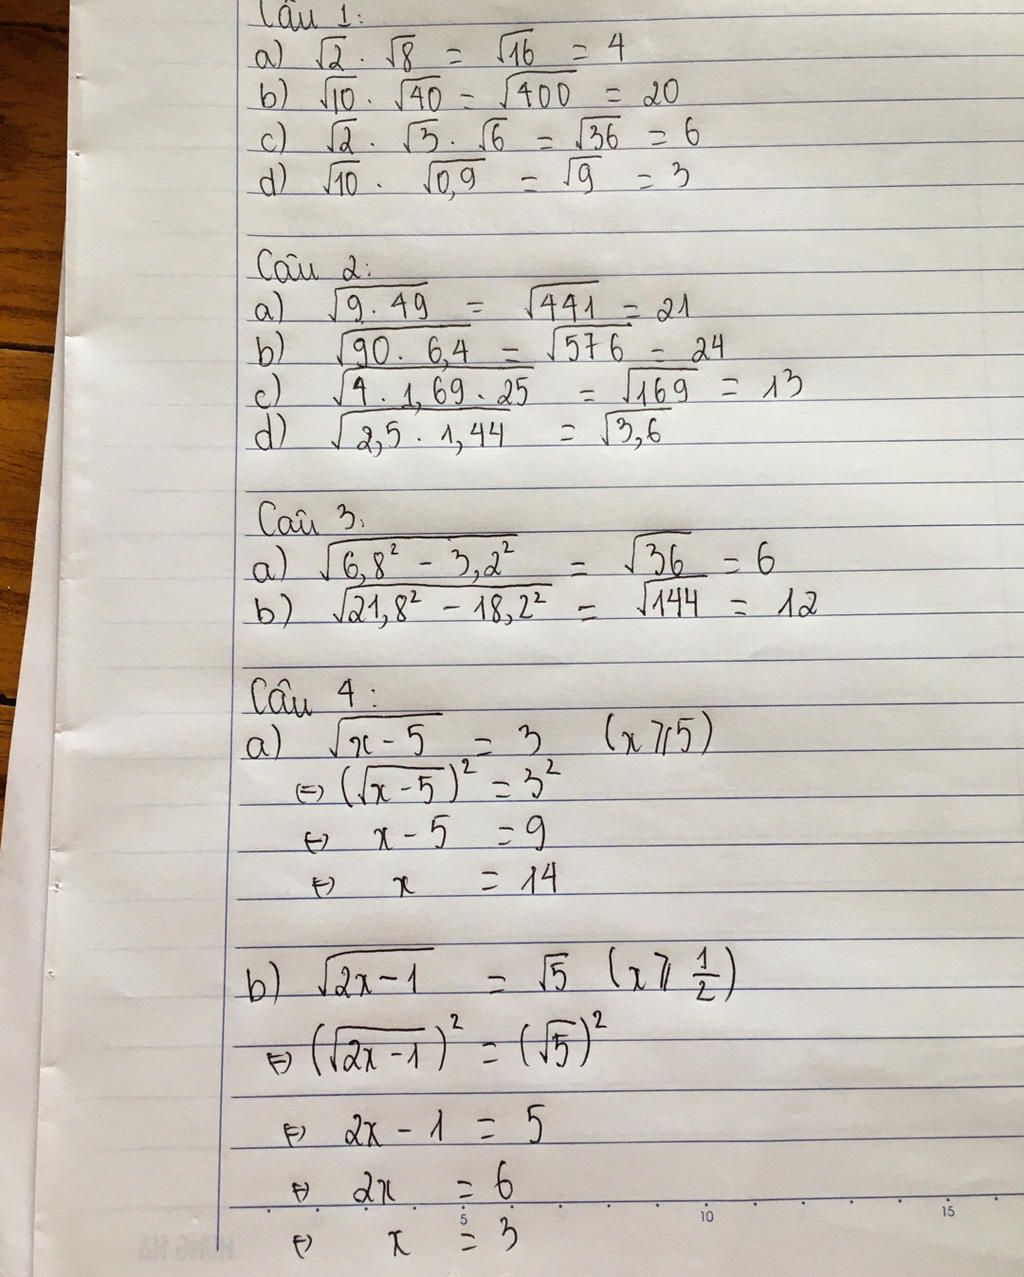 Câu 1:
a) √2 . √8 = √16 = 4
b) √10 . √40 = √400 = 20
c) √2 . √3 . √6 = √36 = 6
d) √10 . √0,9 = √9 = 3
Câu 2:
a) √9.49 = √441 = 21
b) √90.6,4 = √576 = 24
c) √4.1,69.25 = √169 = 13
d) √2,5.1,44 = √3,6
Câu 3:
a) √6,8² - 3,2² = √36 = 6
b) √21,8² - 18,2² = √144 = 12
Câu 4:
a) √x-5 = 3 (x ⩾ 5)
⇔ (√x-5)² = 3²
⇔ x - 5 = 9
⇔ x = 14
b) √2x-1 = √5 (x ⩾ 1/2)
⇔ (√2x-1)² = (√5)²
⇔ 2x - 1 = 5
⇔ 2x = 6
5 10 15
⇔ x = 3